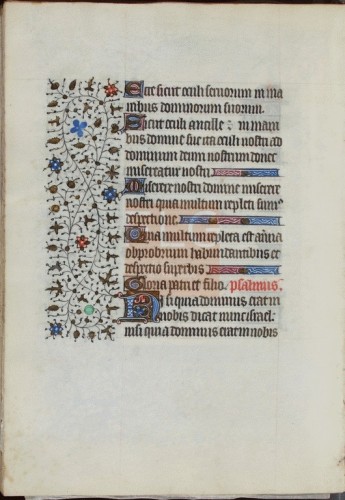 Ecce sicut oculi seruorum in ma
nibus dominorum suorum.
Sicut oculi ancille: in mani
bus domine sue ita oculi nostri ad
dominum deum nostrum donec
misereatur nostri
Miserere nostri domine miserere
nostri quia multum repleti sum9
despectione
Quia multum repleta est anima
obprobrium habundantibus et
despectio superbis
Gloria patri et filio. psalmus.
Nisi quia dominus erat in
nobis dicat nunc israel:
nisi quia dominus erat in nobis